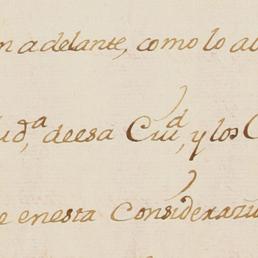 n adelante, como lo a
ud,ª deesa Ciuᵈ, y los C
e enesta Consideraz